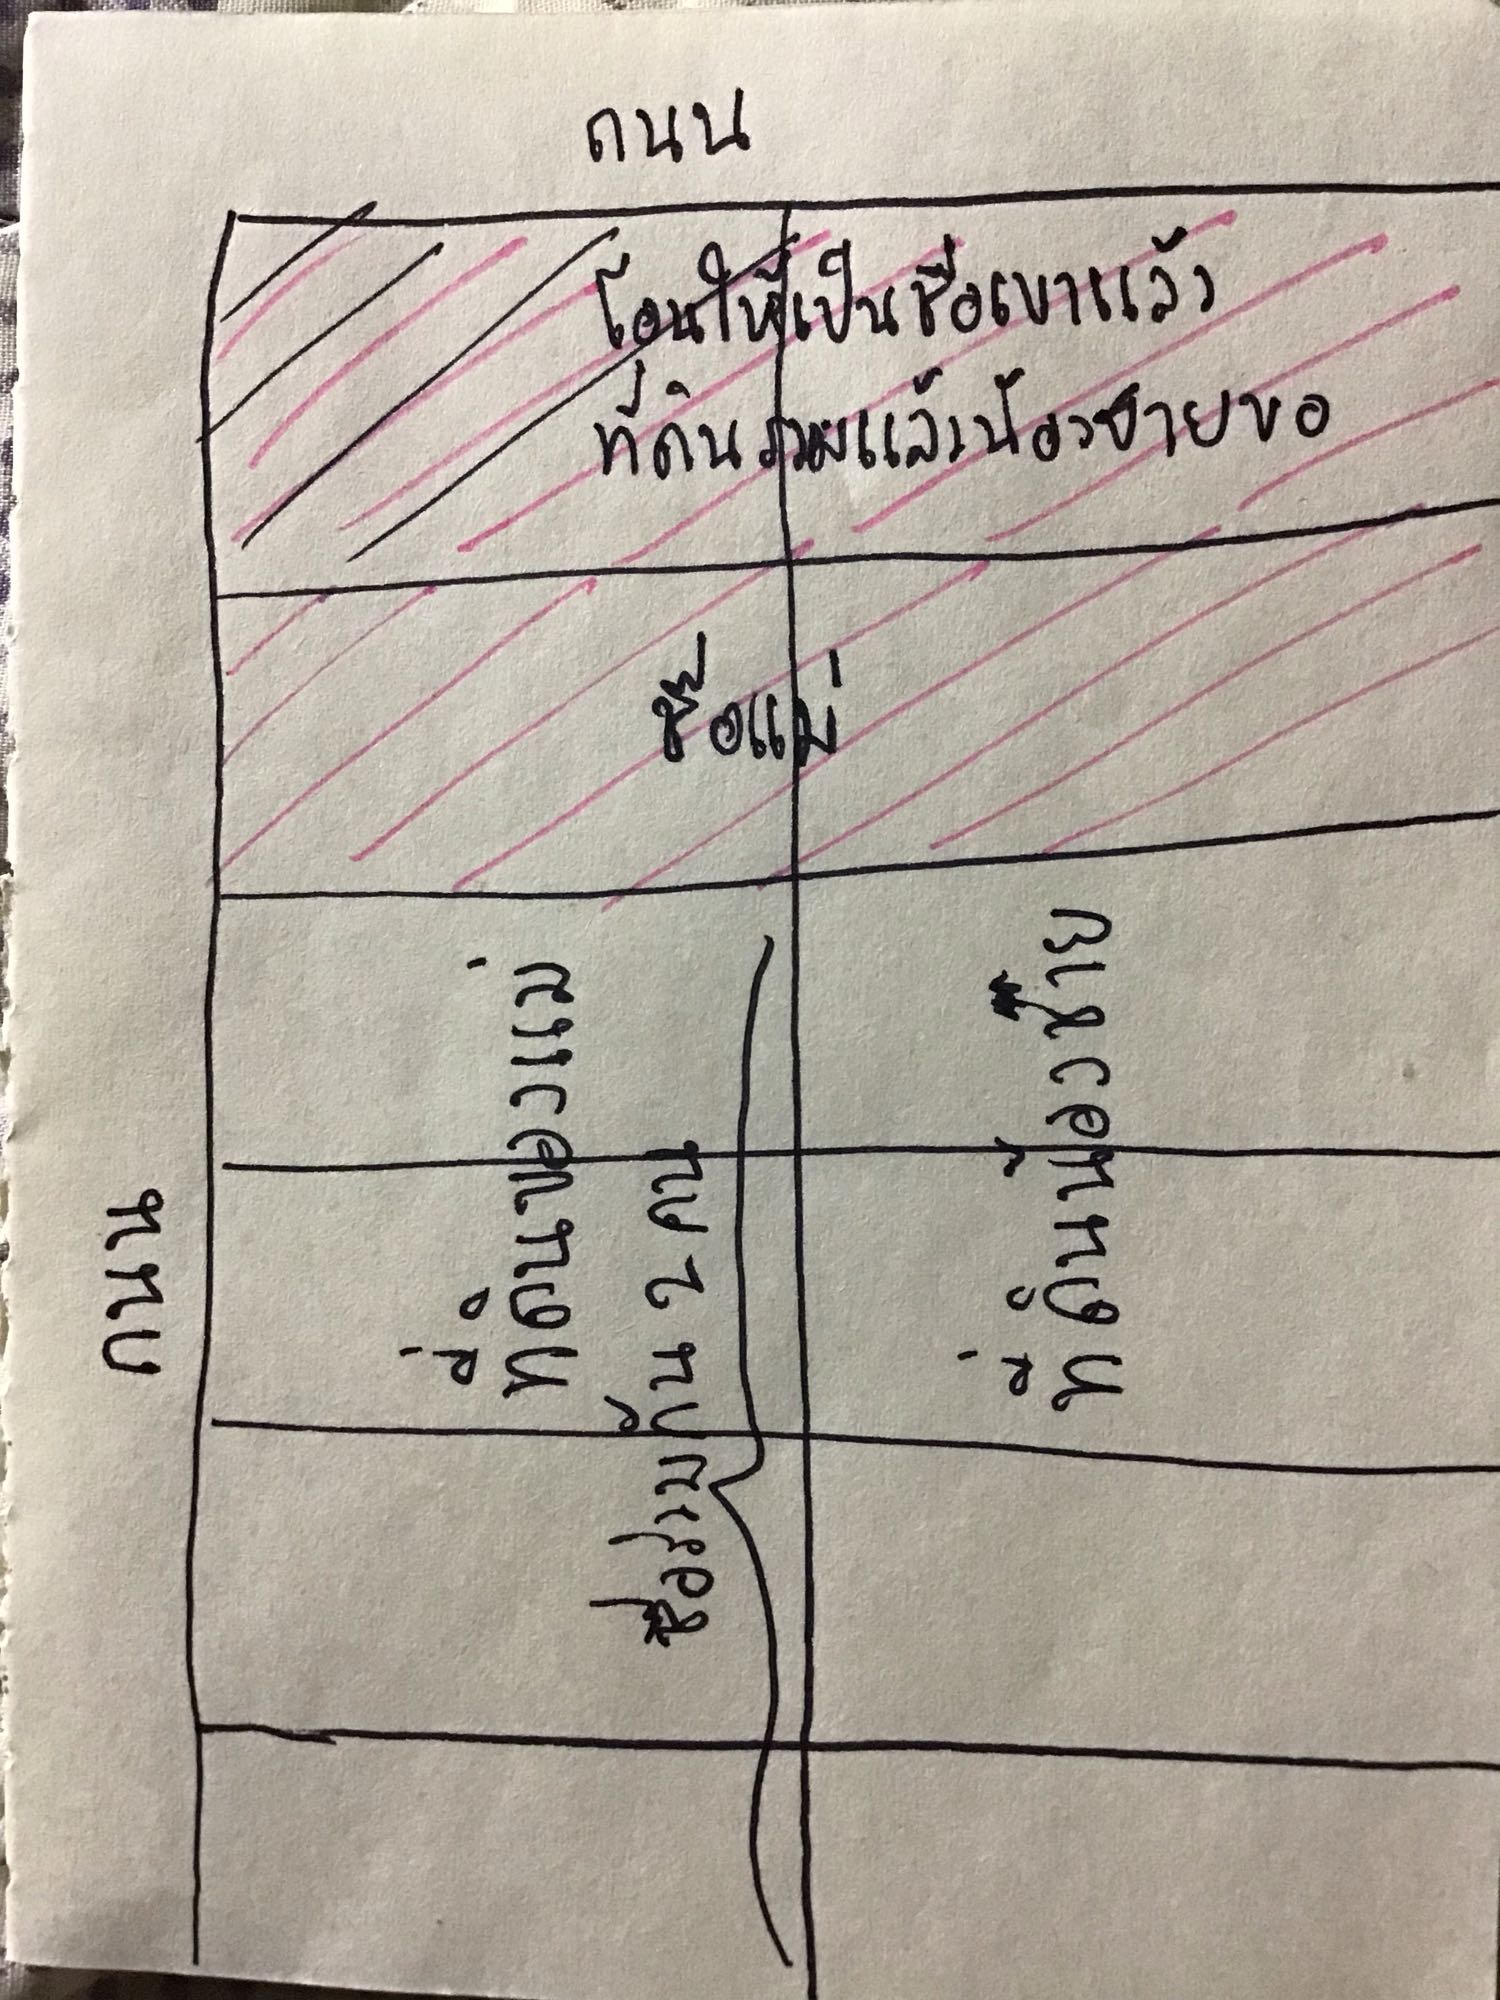 ถนน
โอนให้เป็นชื่อเขาแล้ว
ที่ดินรวมแล้วน้องชายขอ
ชื่อแม่
ที่ดินของแม่
ชื่อร่วมกัน 2 คน
ที่ดินน้องชาย
ถนน